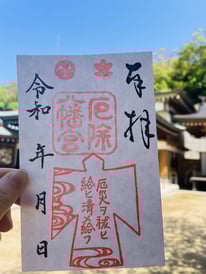 奉拝
厄除
八幡宮
厄災ヲ祓ひ
給ひ清メ給フ
令和 年 月 日